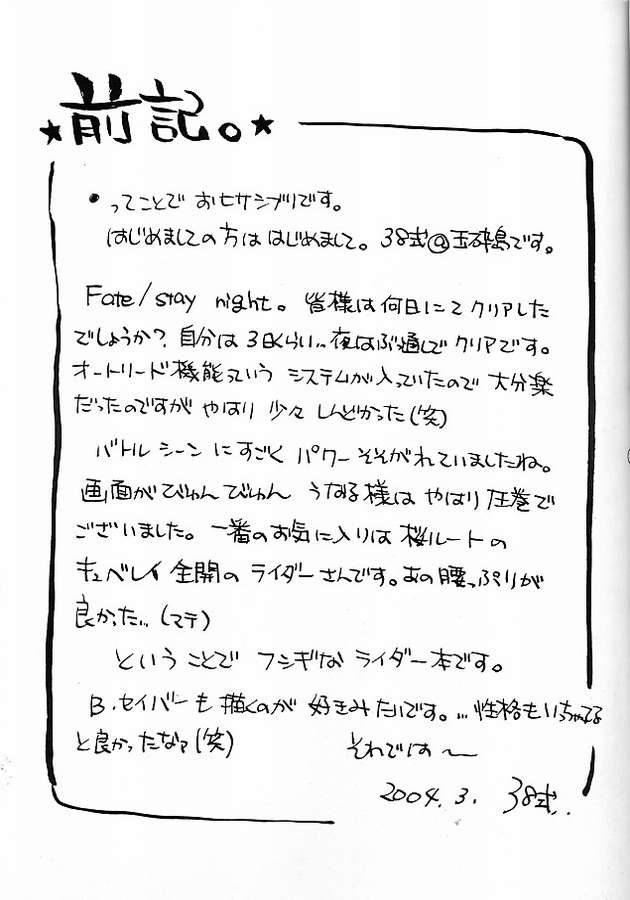 ★前記。★
・ってことで おヒサシブリです。
はじめましての方は はじめまして。38式@玉砕島です。
Fate/stay night。皆様は何日にて クリアした
でしょうか?自分は3日くらい..夜はぶっ通しで クリアです。
オートリード機能っていう システムが入っていたので 大分楽
だったのですが やはり 少々 しんどかった(笑)
バトルシーン にすごく パワー そそがれていましたね。
画面が びゅんびゅん うなる様は やはり 圧巻で
ございました。一番のお気に入りは 桜ルートの
キュベレイ 全開の ライダーさんです。あの腰っぷりが
良かった... (マテ)
ということで フシギな ライダー本です。
B.セイバーも 描くのが 好きみたいです。...性格もいっちゃってる
と良かったなァ(笑) それでは〜
2004.3. 38式..